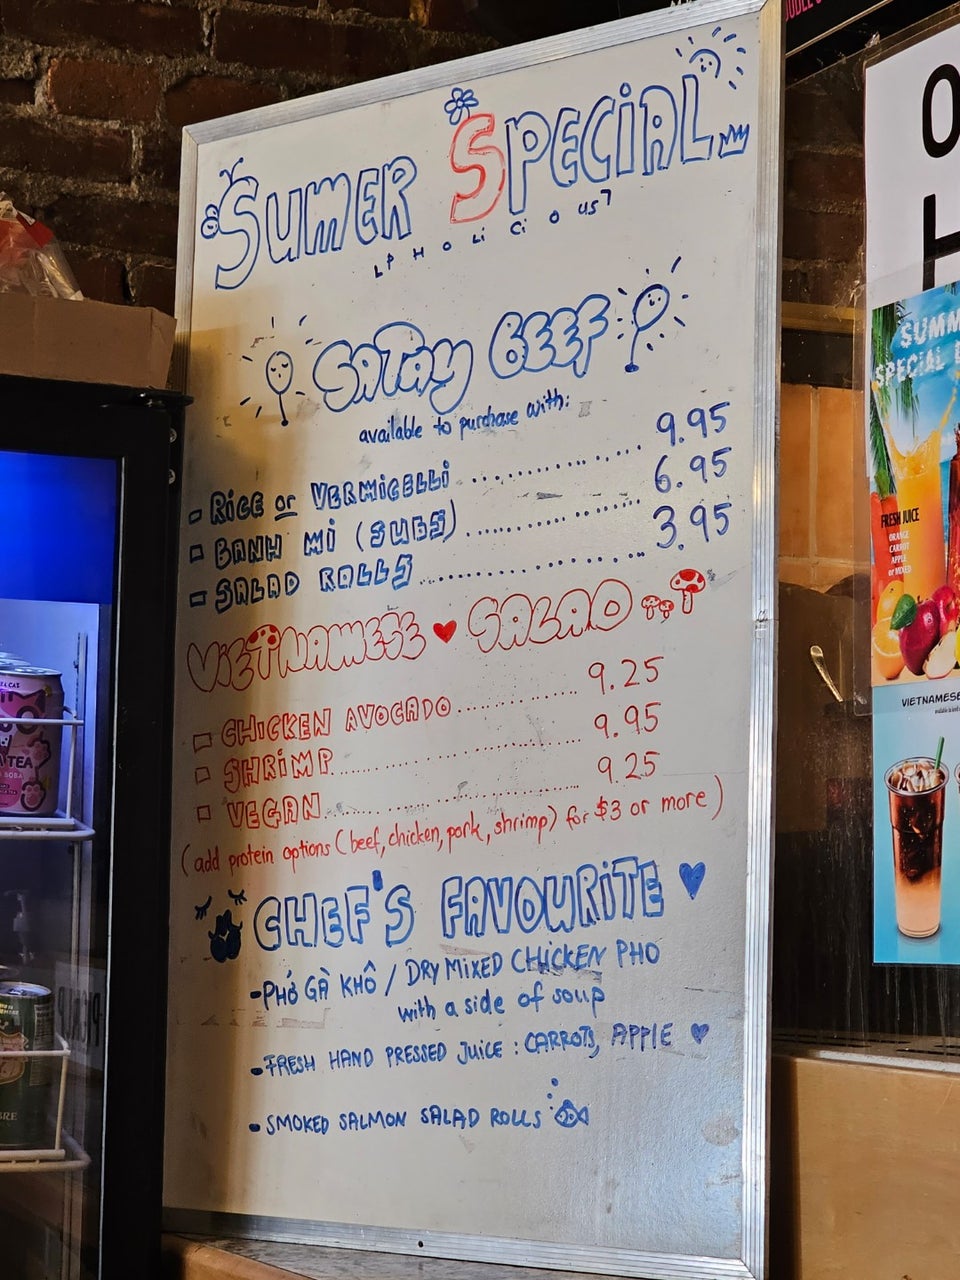 SUMER SPECIAL
LP HOLiCiOUS7
SATAY BEEF
available to purchase with:
- RiCE or VERMiCELLi ........ 9.95
- BANH Mi (SUBS) ........ 6.95
- SALAD ROLLS ........ 3.95
ViETNAMESE ♥ SALAD
CHICKEN AVOCADO ........ 9.25
SHRiMP ........ 9.95
VEGAN ........ 9.25
(add protein options (beef, chicken, pork, shrimp) for $3 or more)
CHEF'S FAVOURiTE ♥
- PHỞ GÀ KHÔ / DRY MIXED CHICKEN PHO
with a side of soup
- FRESH HAND PRESSED JUICE : CARROTS, APPLE ♥
- SMOKED SALMON SALAD ROLLS
O
H
SUMM
SPECIAL
FRESH JUICE
ORANGE
CARROT
APPLE
or MIXED
VIETNAMESE
TEA
BOBA